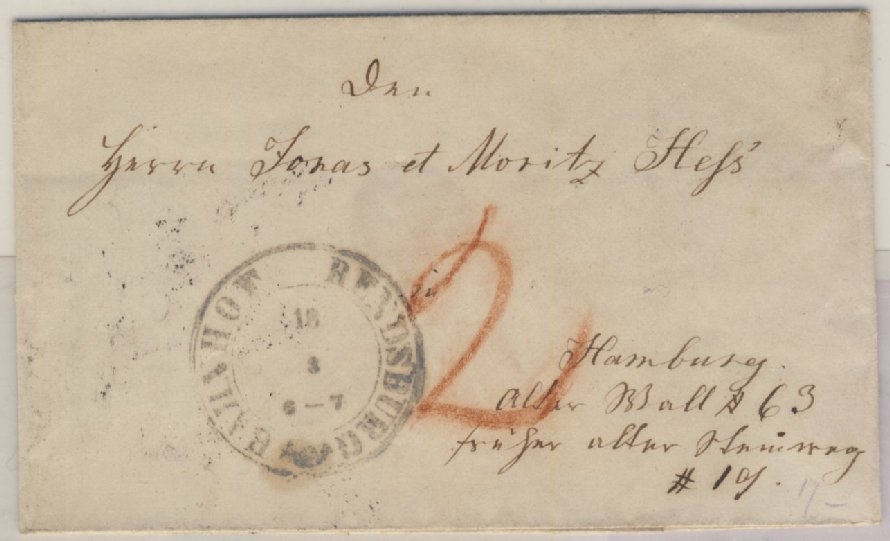 Den
Herrn Jonas et Moritz Hess
RENDSBURG BAHNHOF
18
8
6-7
2
in
Hamburg.
Alter Wall # 63
früher alter Steinweg
# 19.